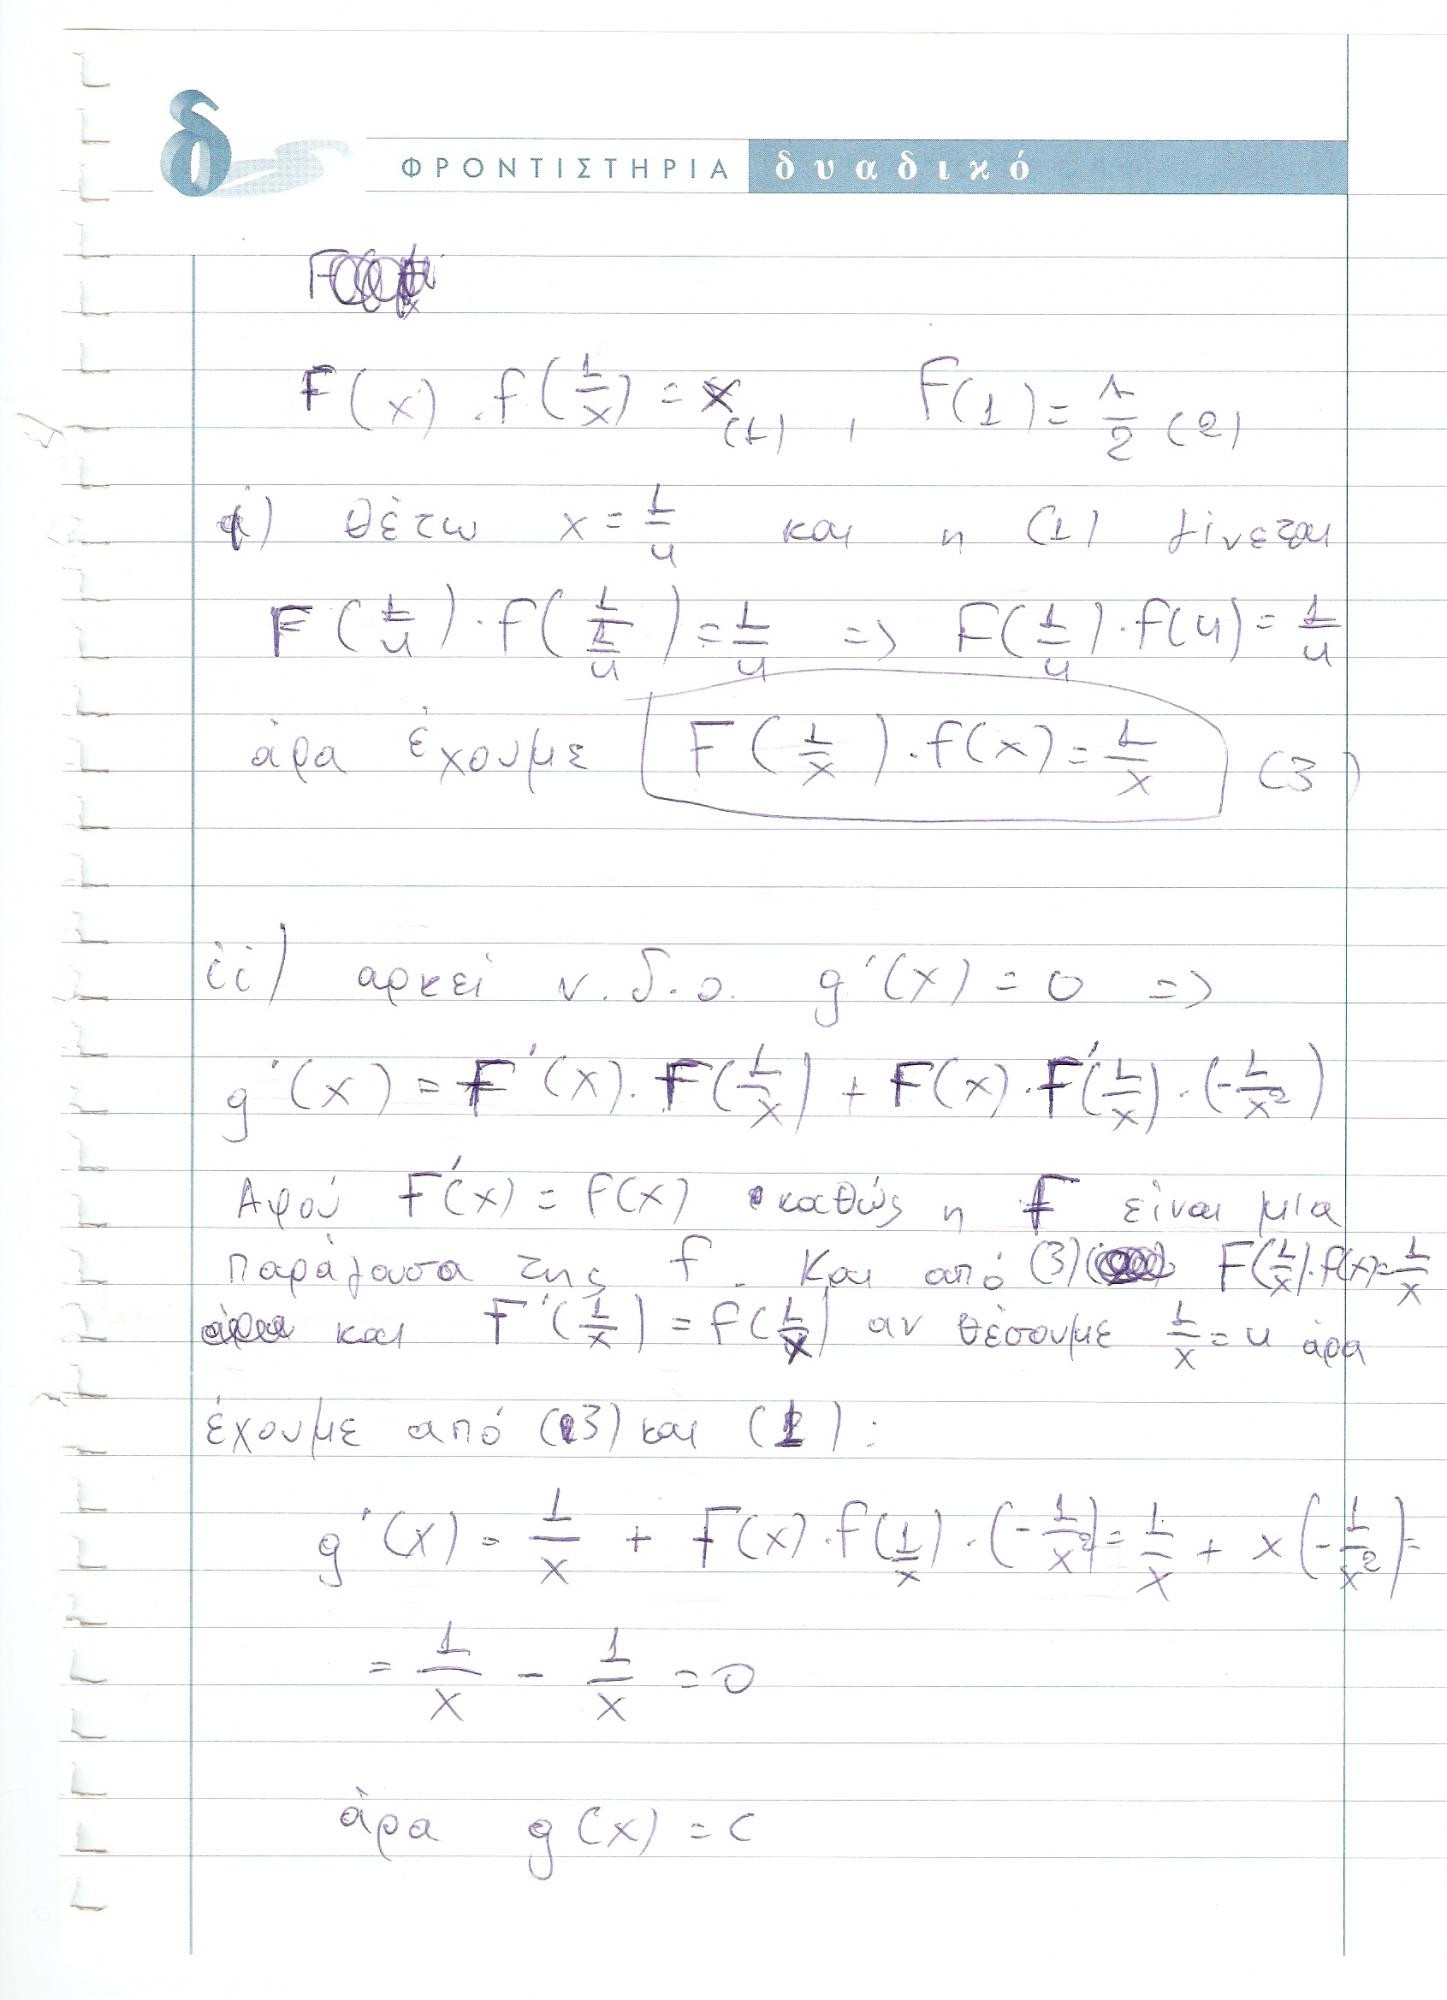 δ ΦΡΟΝΤΙΣΤΗΡΙΑ δυαδικό
F(x) . f(1/x) = x (1) , F(1) = 1/2 (2)
i) θέτω x = 1/u και η (1) γίνεται
F(1/u) · f(1/(1/u)) = 1/u => F(1/u) · f(u) = 1/u
άρα έχουμε F(1/x) · f(x) = 1/x (3)
ii) αρκεί ν.δ.ο. g'(x) = 0 =>
g'(x) = F'(x) . F(1/x) + F(x) · F'(1/x) · (-1/x²)
Αφού F'(x) = f(x) καθώς η F είναι μια
παράγουσα της f . Και από (3) F(1/x) · f(x) = 1/x
και F'(1/x) = f(1/x) αν θέσουμε 1/x = u άρα
έχουμε από (3) και (1) :
g'(x) = 1/x + F(x) · f(1/x) · (-1/x²) = 1/x + x(-1/x²) =
= 1/x - 1/x = 0
άρα g(x) = c